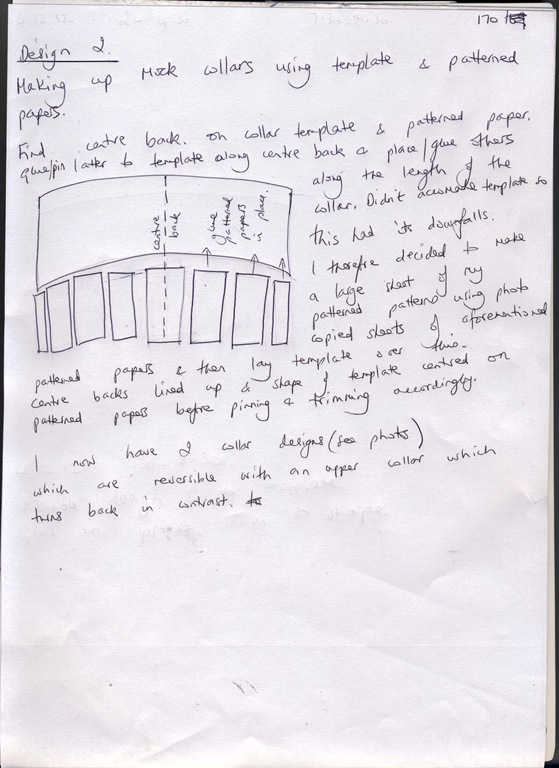 170
Design 2.
Making up Mock collars using template & patterned
papers.
Find centre back. on collar template & patterned paper.
glue/pin latter to template along centre back & place/glue others
along the length of the
collar. Didn't accomodate template so
this had its downfalls.
I therefore decided to make
a large sheet of my
patterned patterns using photo
copied sheets of aforementioned
patterned papers & then lay template over this.
centre backs lined up & shape of template centred on
patterned papers before pinning & trimming accordingly.
centre
back
glue
patterned
papers
in place.
I now have 2 collar designs (see photos)
which are reversible with an upper collar which
turns back in contrast.